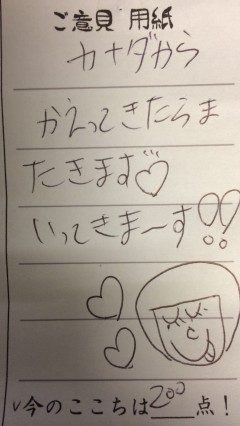 ご意見 用紙
カナダから
かえってきたらま
たきます♡
いってきまーす!!
今のここちは200点!